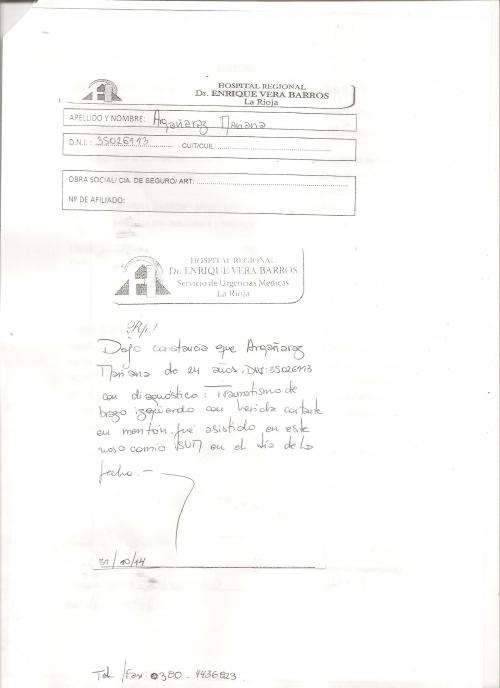 HOSPITAL REGIONAL
Dr. ENRIQUE VERA BARROS
La Rioja
APELLIDO Y NOMBRE: Argañaraz Mariana
D.N.I. : 35026113 CUIT/CUIL:
OBRA SOCIAL/ CIA. DE SEGURO/ ART:
Nº DE AFILIADO:
HOSPITAL REGIONAL
Dr. ENRIQUE VERA BARROS
Servicio de Urgencias Medicas
La Rioja
Rp/
Dejo constancia que Argañaraz
Mariana de 24 años, DNI: 35026113
con diagnóstico: Traumatismo de
brazo izquierdo con herida cortante
en mentón, fué asistido en este
nosocomio (SUM) en el día de la
fecha. —
31/10/14
Tel /Fax 0380 - 4436823